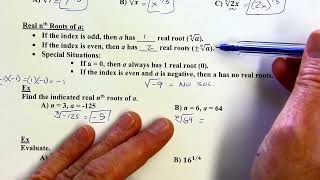 A) √ B) ⁿ√x = x^1/3 C) ⁴√(2x)³ = (2x)^3/5
Real nᵗʰ Roots of a:
• If the index is odd, then a has 1 real root (ⁿ√a).
• If the index is even, then a has 2 real roots (±ⁿ√a).
• Special Situations:
• If a = 0, then a always has 1 real root (0).
• If the index is even and a is negative, then a has no
-1)(-1) = (1)(-1) = -1 √-9 = NO SOL.
Ex
Find the indicated real nᵗʰ roots of a.
A) n = 3, a = -125 B) n = 6, a = 64
³√-125 = -5 ⁶√64 =
Ex
Evaluate
A) B) 16^1/4